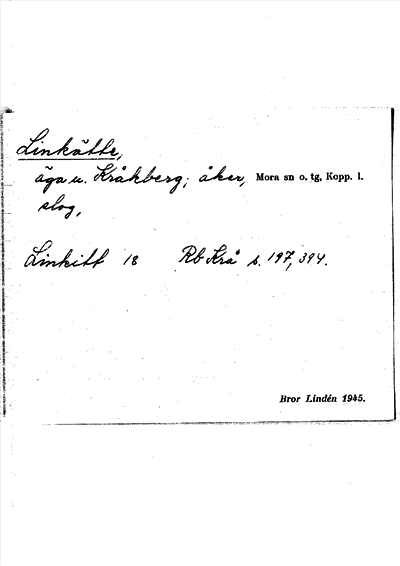 Linkätte,
äga u. Kråkberg; åker, Mora sn o. tg, Kopp. l.
slog,
Linkitt 18 Rb Krå s. 197, 394.
Bror Lindén 1945.